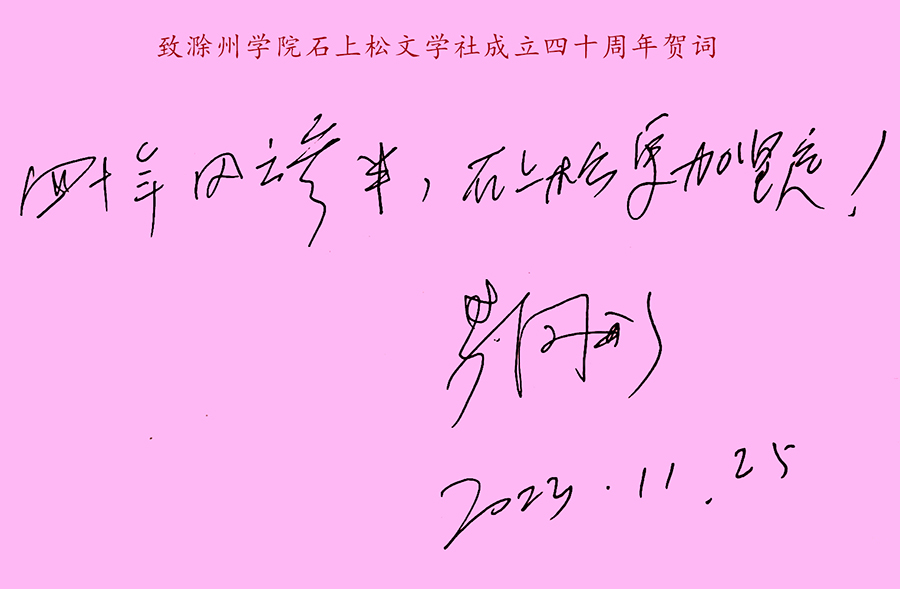 致滁州学院石上松文学社成立四十周年贺词
四十年风云参半，石上松更加坚定！
2023.11.25